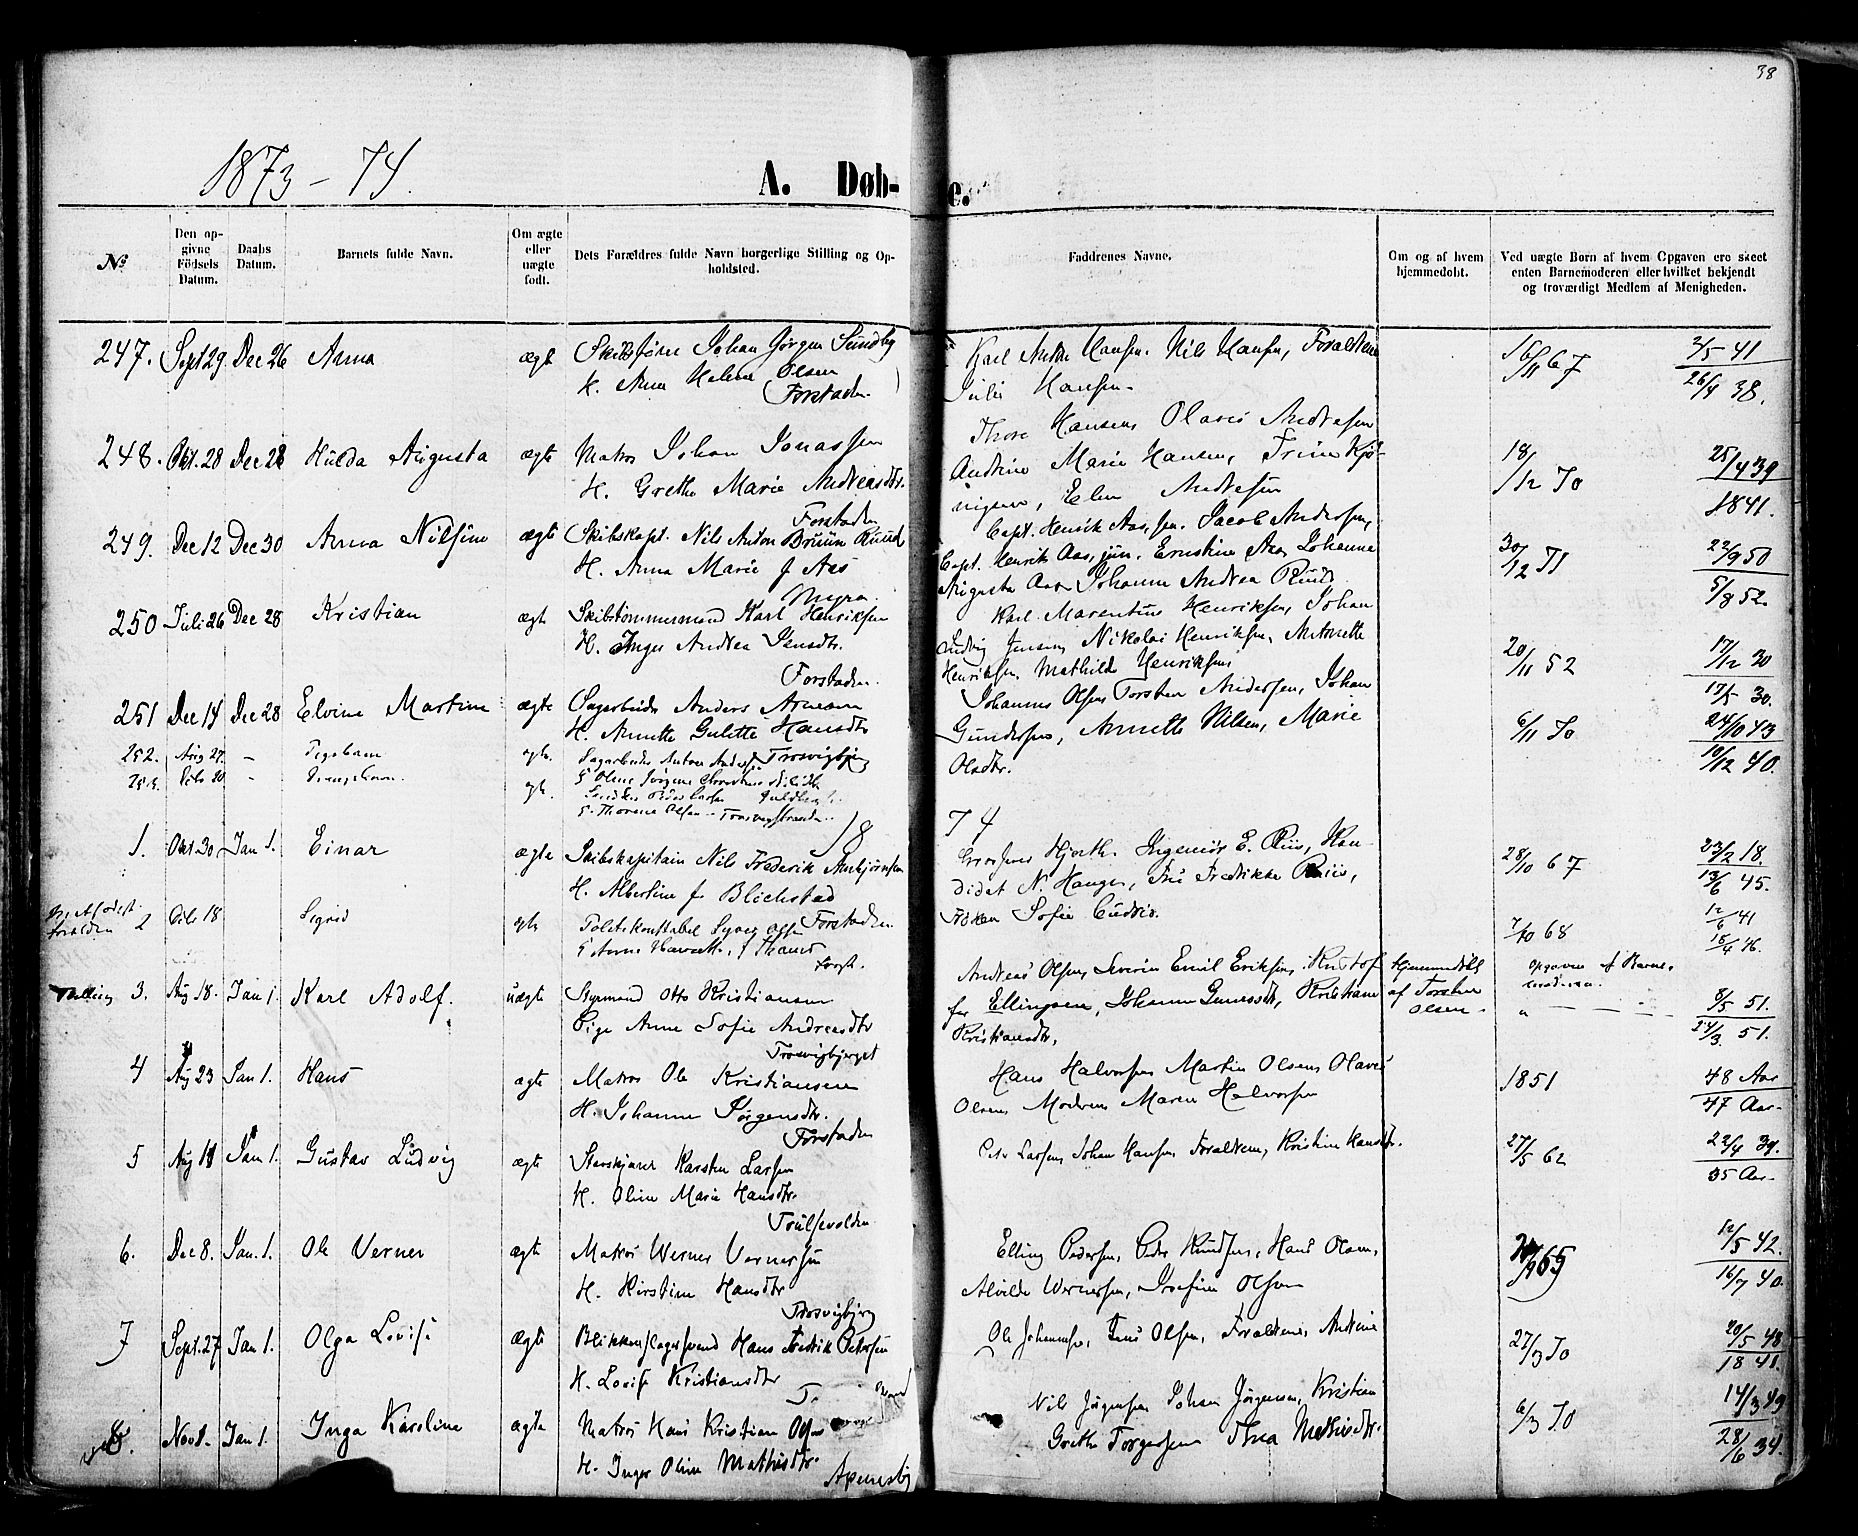 38
1873 - 74.
A. Døb-
e.
№
Den op-
givne
Födsels
Datum.
Daabs
Datum.
Barnets fulde Navn.
Om ægte
eller
uægte
født.
Dets Forældres fulde Navn borgerlige Stilling og Op-
holdsted.
Faddrenes Navne.
Om og af hvem
hjemmedøbt.
Ved uægte Børn af hvem Opgaven ere skeet
enten Barnemoderen eller hvilket bekjendt
og troværdigt Medlem af Menigheden.
247. Sept 29. Dec 26 Anna ægte Skibsfører Johan Jørgen Sundby
H. Anna Helene Olsen
Forstaden.
Karl Hansen. Nils Hansen, Forældrene
Julie Hansen.
16/11 67
2/5 41
26/4 38.
248. Okt. 28 Dec 28 Hulda Augusta ægte Matros Johan Jonassen
H. Grethe Marie Andreasdtr.
Forstaden
Thore Hansen Olaves Andresen
Andrine Marie Hansen, Trine Kjø-
nigsen, Elen Andresen
18/12 70
25/4 39
1841.
249. Dec 12 Dec 30 Anna Nilsine ægte Skibskapt. Nils Anton Bruun Ruud
H. Anna Marie f Aas
Myra.
Capt. Henrik Aas, sen. Jacob Andersen,
Capt. Henrik Aas, jun. Ernstine Aas, Johanne
Augusta Aas, Johanne Andrea Ruud.
30/12 71
22/9 50
5/8 52.
250 Juli 26 Dec 28 Kristian ægte Skibstømmermand Karl Henriksen
H. Inger Andrea Jensdtr.
Forstaden.
Karl Marentius Henriksen, Johan
Ludvig Jensen, Nikolai Henriksen, Antonette
Henriksen, Mathilde Henriksen
20/11 52
17/12 30
17/5 30.
251 Dec 14 Dec 28 Elvine Martine ægte Sagarbeider Anders Arnesen
H. Annette Gulette Hansdtr
Trosvigbjerg
Johannes Olsen Torsten Andersen, Johan
Gundersen, Annette Nilsen, Marie
Olsdtr.
6/11 70
24/10 43
10/12 40.
252. Aug 27. - Pigebarn ægte Sagarbeider Anton
Dcbr 30. - Drengebarn. ægte Peder Larsen
Thorene Olsen - Trosvigstranden.
18
74
1. Okt 30 Jan 1. Einar ægte Skibskapitain Nils Frederik Ankjørnsen
H. Albertine f Blichstad
Forstaden.
Hjorth. Ingeniør E. Riis, Kan-
didat N. Hauge, Fru Fredrikke Riis,
Frøken Sofie
28/10 67
23/2 18.
13/6 45.
2 Dcbr 18 Sigrid ægte Politikonstabel Syver Olsen
Forst.
7/10 68
12/6 41
15/4 46.
3. Aug 18. Jan 1. Karl Adolf. uægte Styrmand Otto Kristiansen
Pige Anne Sofie Andreasdtr
Trosvigbjerget
Andreas Olsen, Severin Emil Eriksen, Kristof
fer Ellingsen, Johanne Gunersdtr, Kristiane
Kristiansdtr,
Hjemmedøbt
af Torsten
Olsen -
Opgaven af Barne-
moderen.
8/5 51.
24/3. 51.
4 Aug 23 Jan 1. Hans ægte Matros Ole Kristiansen
H. Johanne Jørgensdtr.
Forstaden
Hans Halvorsen Martin Olsen, Olaves
Olsen, Moderen Maren Halvorsen
1851
48 Aar
47 Aar-
5 Aug 11 Jan 1. Gustav Ludvig ægte Stenskjærer Karsten Larsen
H. Oline Marie Hansdtr.
Trulsevolden
Petr Larsen, Johan Hansen, Forældrene, Kristine Hansdtr.
27/5 62
22/4 39.
35 Aar-
6. Dec 8. Jan. 1. Ole Verner ægte Matros Werner Vernersen
H. Kirstine Hansdtr
Trosvigbjerg
Elling Pedersen, Peder Knudsen, Hans Olsen,
Alvilde Wernersen, Josefine Olsen
65
12/5 42.
16/7 40.
7 Sept. 27 Jan 1. Olga Lovise ægte Blikkenslagersvend Hans Fredrik Petersen
H. Lovise Kristiansdtr
Ole Johannesen, Jens Olsen, Forældrene, Andrine
27/3 70
20/5 48
18 41.
8. Nov 1. Jan 1. Inga Karoline ægte Matros Hans Kristian Olsen
H. Inger Oline Mathisdtr.
Apenesby
Nils Jørgensen Johan Jørgensen, Kristian
Grethe Torgersen Thea Mathisdtr.
6/3 70
14/3 49
28/6 34.